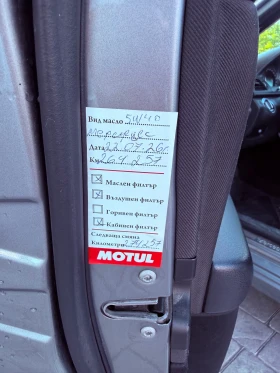 Вид масло 5W40
Мерседес
Дата 22.07.26г
Км. 264257
Маслен филтър
Въздушен филтър
Горивен филтър
Кабинен филтър
Следваща смяна
Километри
MOTUL